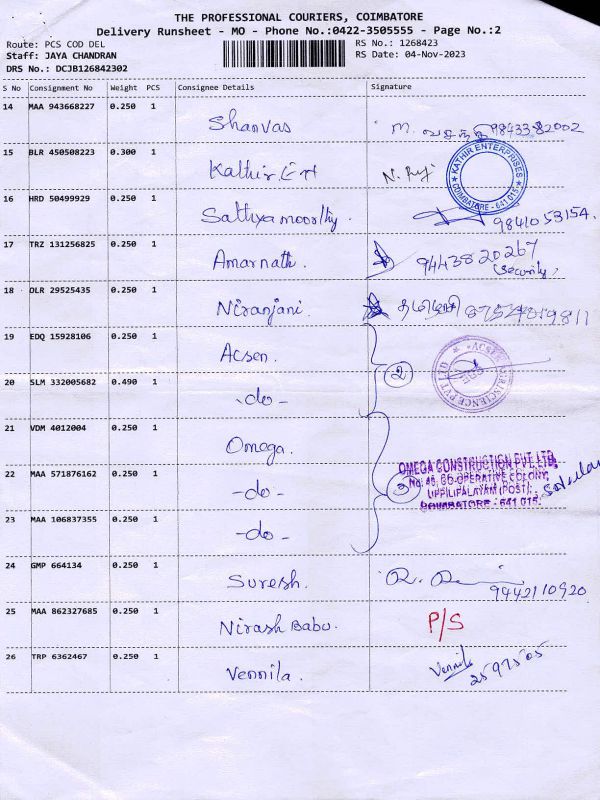 THE PROFESSIONAL COURIERS, COIMBATORE
Delivery Runsheet - MO - Phone No.:0422-3505555 - Page No.:2
Route: PCS COD DEL
RS No.: 1268423
Staff: JAYA CHANDRAN
RS Date: 04-Nov-2023
DRS No.: DCJB126842302
S No Consignment No Weight PCS Consignee Details Signature
14 MAA 943668227 0.250 1 Shanvas M. வசந்தி 9843382002
15 BLR 450508223 0.300 1 Kathir Ent
KATHIR ENTERPRISES
COIMBATORE - 641 015
16 HRD 50499929 0.250 1 Sathyamoorthy. 9841053154.
17 TRZ 131256825 0.250 1 Amarnath. 9443820267
Security.
18 DLR 29525435 0.250 1 Niranjani.
19 EDQ 15928106 0.250 1 Acsen. 2
20 SLM 332005682 0.490 1 -do-
21 VDM 4012004 0.250 1 Omega.
OMEGA CONSTRUCTION PVT LTD,
22 MAA 571876162 0.250 1 -do- 3
No: 46, CO-OPERATIVE COLONY,
UPPILIPALAYAM (POST),
COIMBATORE - 641 015.
23 MAA 106837355 0.250 1 -do-
24 GMP 664134 0.250 1 Suresh.
9442110920
25 MAA 862327685 0.250 1 Nirash Babu. P/S
26 TRP 6362467 0.250 1 Vennila. Vennila